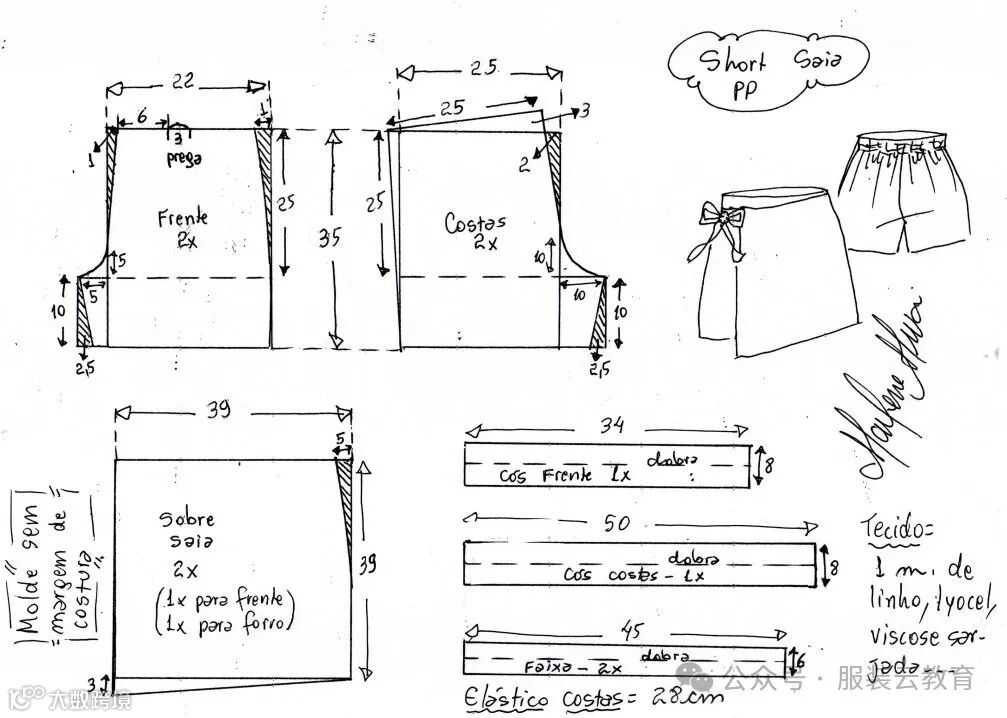 Short Saia
PP
22
6
1
3
prega
1
Frente
2x
25
35
5
5
10
2,5
25
25
3
2
25
Costas
2x
10
10
10
2,5
39
5
Sobre
saia
2x
(1x para frente
1x para forro)
39
3
"Molde sem
margem de
costura"
34
dobra
Cós Frente 1x
8
50
dobra
Cós costas - 1x
8
45
dobra
Faixa - 2x
6
Elástico costas = 28cm
Tecido=
1 m. de
linho, lyocel,
viscose sar-
jada
公众号 · 服装云教育
大数跨境